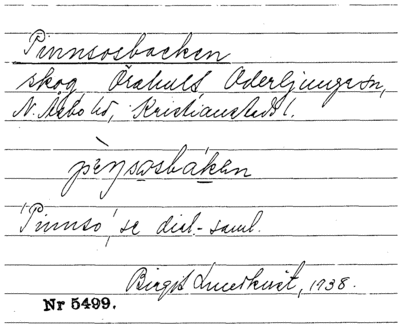 Pinnsosbacken
skog, Örahult, Oderljunga sn,
N. Åsbo hd, Kristianstads l.
pèŋsɷsbákən
'Pinnso', se dial-saml.
Birgit Lundkvist, 1938.
Nr 5499.